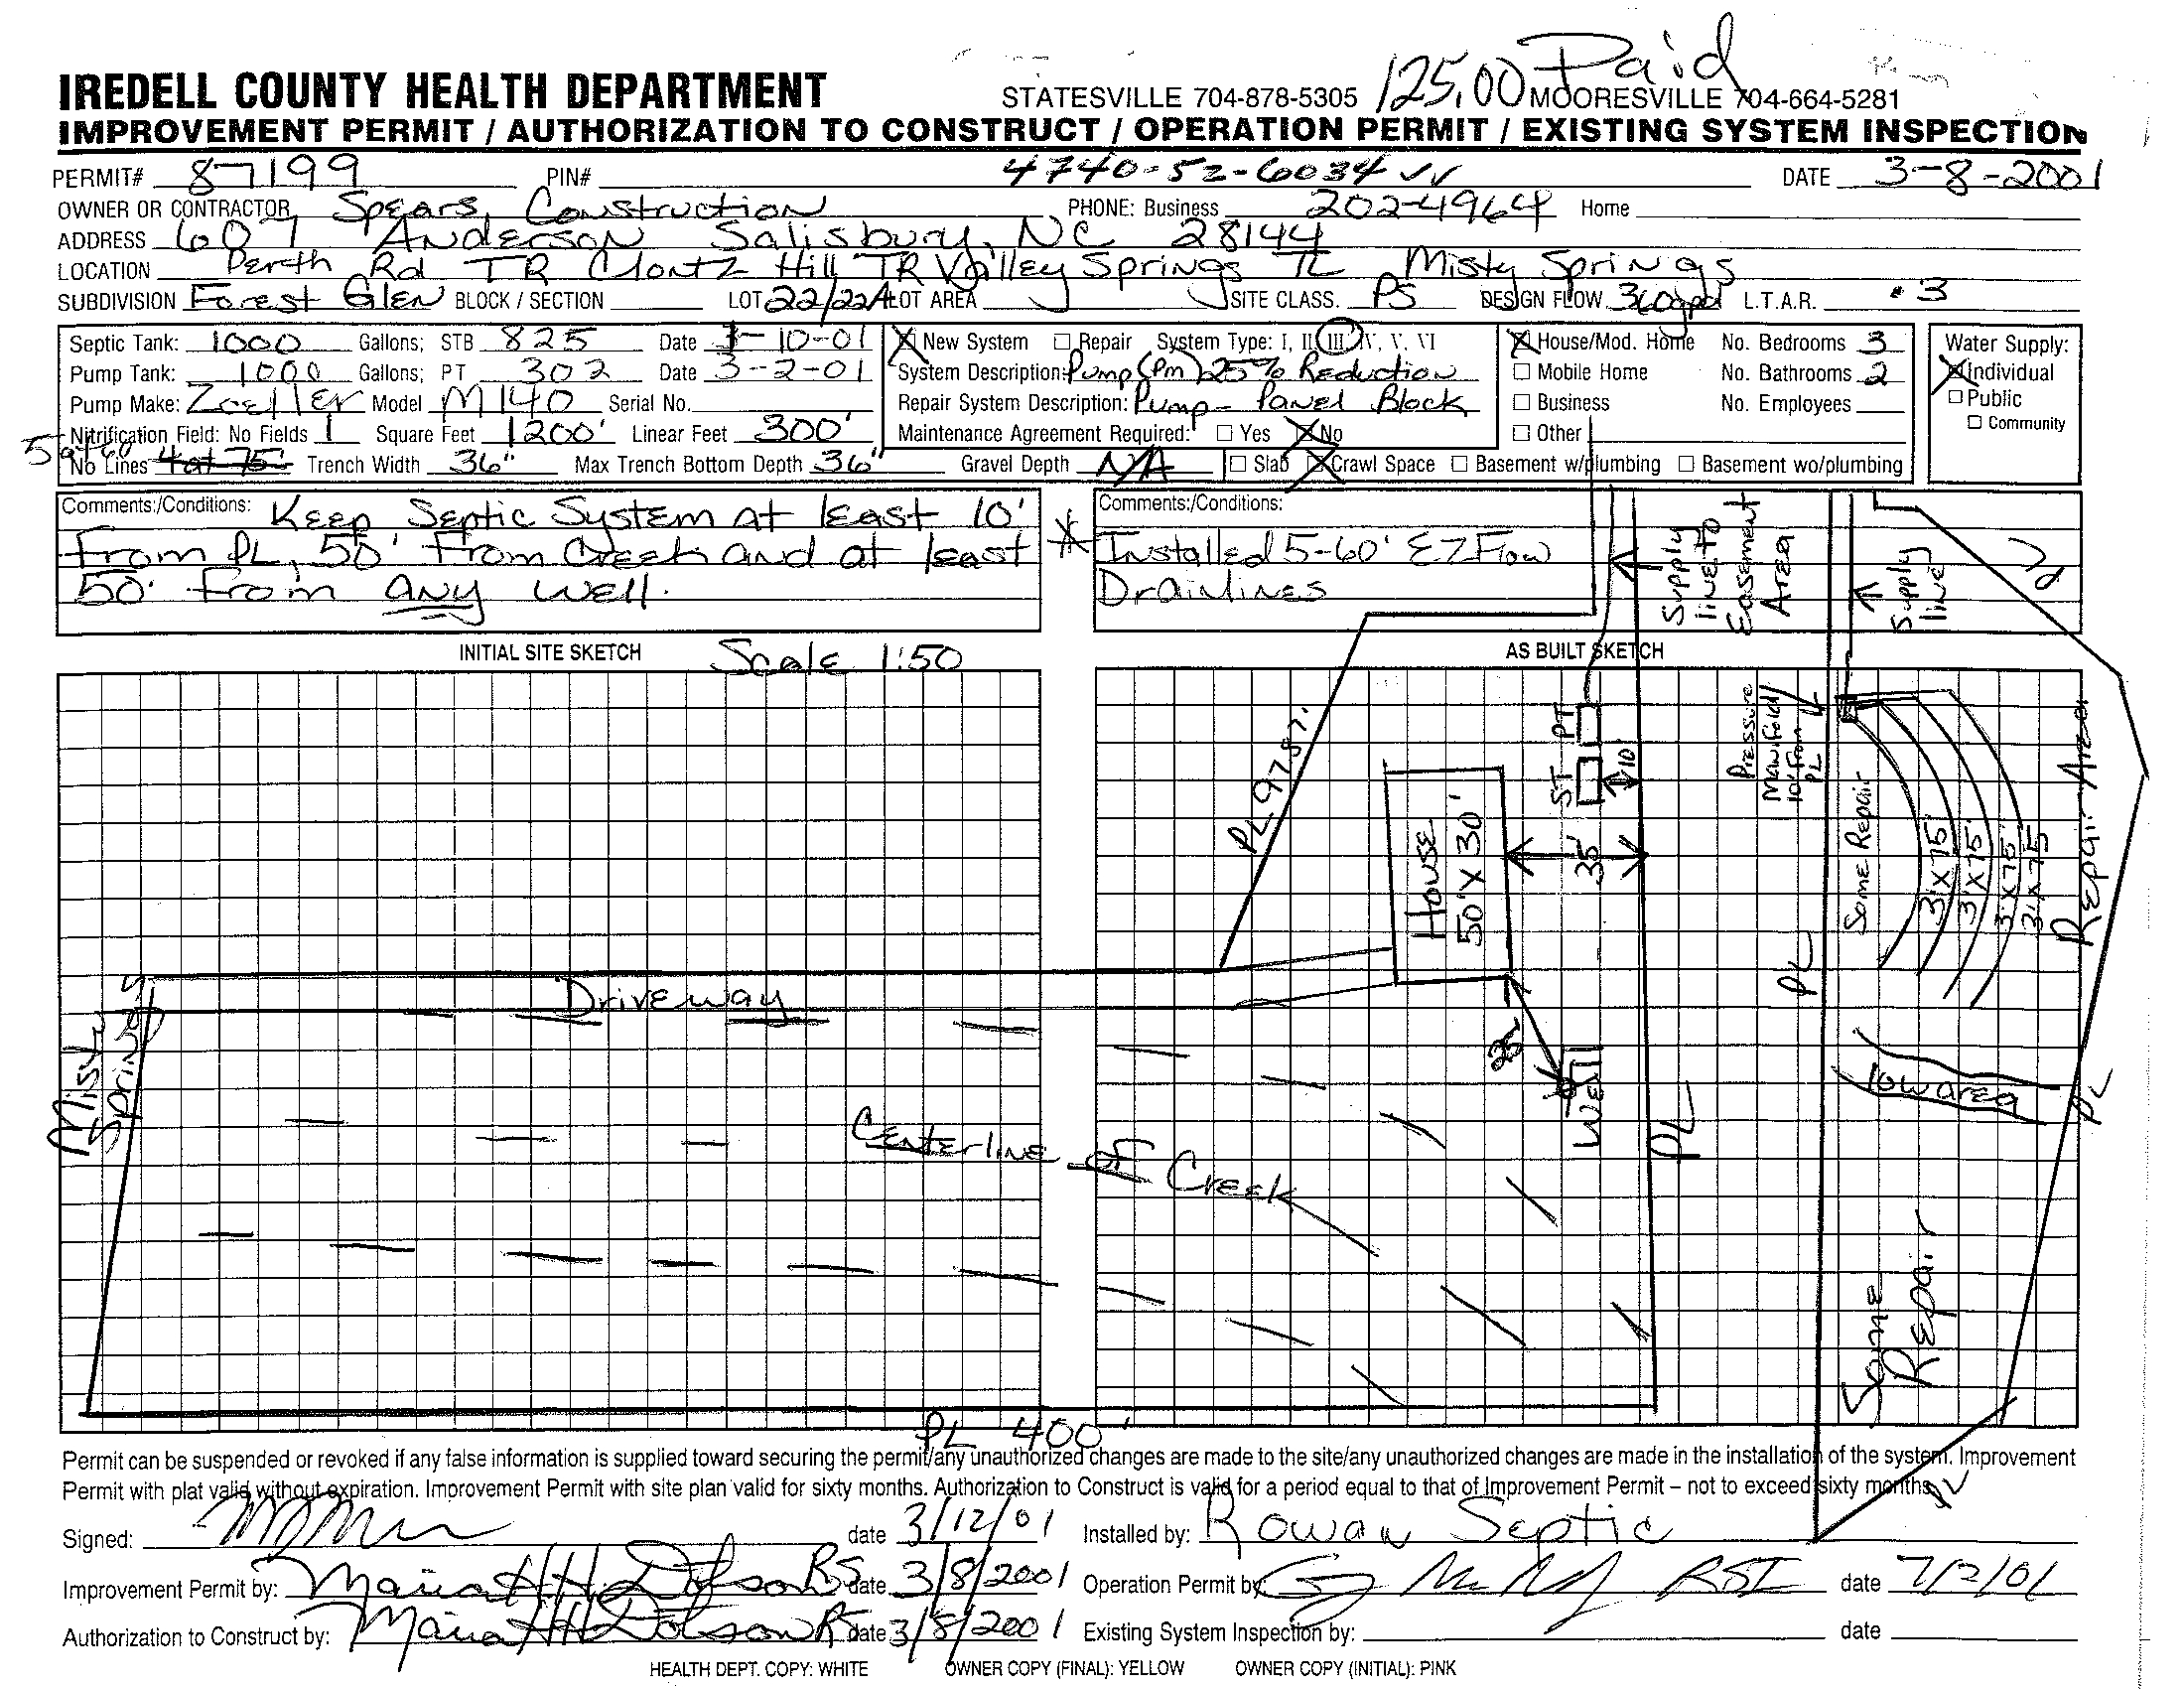 125.00 Paid
IREDELL COUNTY HEALTH DEPARTMENT STATESVILLE 704-878-5305 MOORESVILLE 704-664-5281
IMPROVEMENT PERMIT / AUTHORIZATION TO CONSTRUCT / OPERATION PERMIT / EXISTING SYSTEM INSPECTION
PERMIT# 87199 PIN# 4740-52-6034 DATE 3-8-2001
OWNER OR CONTRACTOR Spears Construction PHONE: Business 202-4964 Home
ADDRESS 607 Anderson Salisbury, NC 28144
LOCATION Perth Rd TR Clontz Hill TR Valley Springs TL Misty Springs
SUBDIVISION Forest Glen BLOCK / SECTION LOT 22/22A LOT AREA SITE CLASS. PS DESIGN FLOW 360gpd L.T.A.R. .3
Septic Tank: 1000 Gallons; STB 825 Date 1-10-01 X New System □ Repair System Type: I, II, III, IV, V, VI X House/Mod. Home No. Bedrooms 3 Water Supply:
Pump Tank: 1000 Gallons; PT 302 Date 3-2-01 System Description: Pump (PM) 25% Reduction □ Mobile Home No. Bathrooms 2 X Individual
Pump Make: Zoeller Model M140 Serial No. Repair System Description: Pump - Panel Block □ Business No. Employees □ Public
Nitrification Field: No Fields 1 Square Feet 1200' Linear Feet 300' Maintenance Agreement Required: □ Yes X No □ Other □ Community
5 at 60
No Lines 4 at 75' Trench Width 36" Max Trench Bottom Depth 36" Gravel Depth N/A □ Slab X Crawl Space □ Basement w/plumbing □ Basement wo/plumbing
Comments:/Conditions: Keep Septic System at least 10'
From PL, 50' From Creek and at least
50' From any well.
Comments:/Conditions:
* Installed 5-60' EZ Flow
Drainlines
Supply line to Easement Area
Supply line
PL
INITIAL SITE SKETCH Scale 1:50 AS BUILT SKETCH
PL 97.87'
PT
ST
10'
House
50' X 30'
35'
Pressure Manifold 10' From PL
Some Repair
3'X75'
3'X75'
3'X75'
3'X75'
Repair Area
PL
Driveway
Misty Springs
25'
Well
PL
low area
PL
Centerline of Creek
Some Repair
PL 400'
PL
Permit can be suspended or revoked if any false information is supplied toward securing the permit/any unauthorized changes are made to the site/any unauthorized changes are made in the installation of the system. Improvement
Permit with plat valid without expiration. Improvement Permit with site plan valid for sixty months. Authorization to Construct is valid for a period equal to that of Improvement Permit – not to exceed sixty months.
Signed: date 3/12/01 Installed by: Rowan Septic
Improvement Permit by: Maria H H Dotson RS date 3/8/2001 Operation Permit by: RSI date 7/2/01
Authorization to Construct by: Maria H H Dotson RS date 3/8/2001 Existing System Inspection by: date
HEALTH DEPT. COPY: WHITE OWNER COPY (FINAL): YELLOW OWNER COPY (INITIAL): PINK